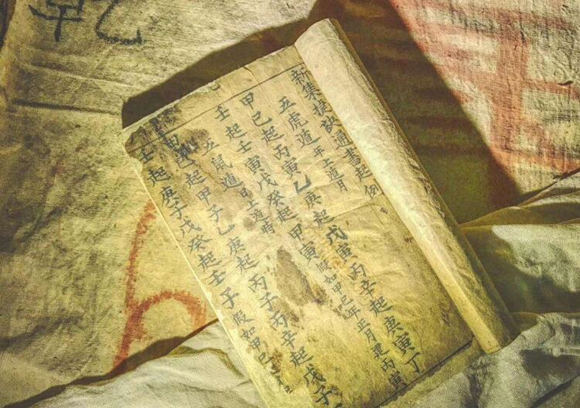 新集捷訣通書起例
五虎遁年上遁月
甲己起丙寅乙庚起戊寅丙辛起庚寅丁
壬起壬寅戊癸起甲寅假如甲己年正月是丙寅
五鼠遁日上遁時
甲己起甲子乙庚起丙子丙辛起戊子
壬起庚子戊癸起壬子假如甲己